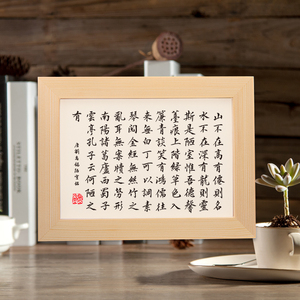 山不在高有僊則名
水不在深有龍則靈
斯是陋室惟吾德馨
苔痕上階綠草色入
簾青談笑有鴻儒往
來無白丁可以調素
琴閱金經無絲竹之
亂耳無案牘之勞形
南陽諸葛廬西蜀子
雲亭孔子云何陋之
有
唐劉禹錫陋室銘